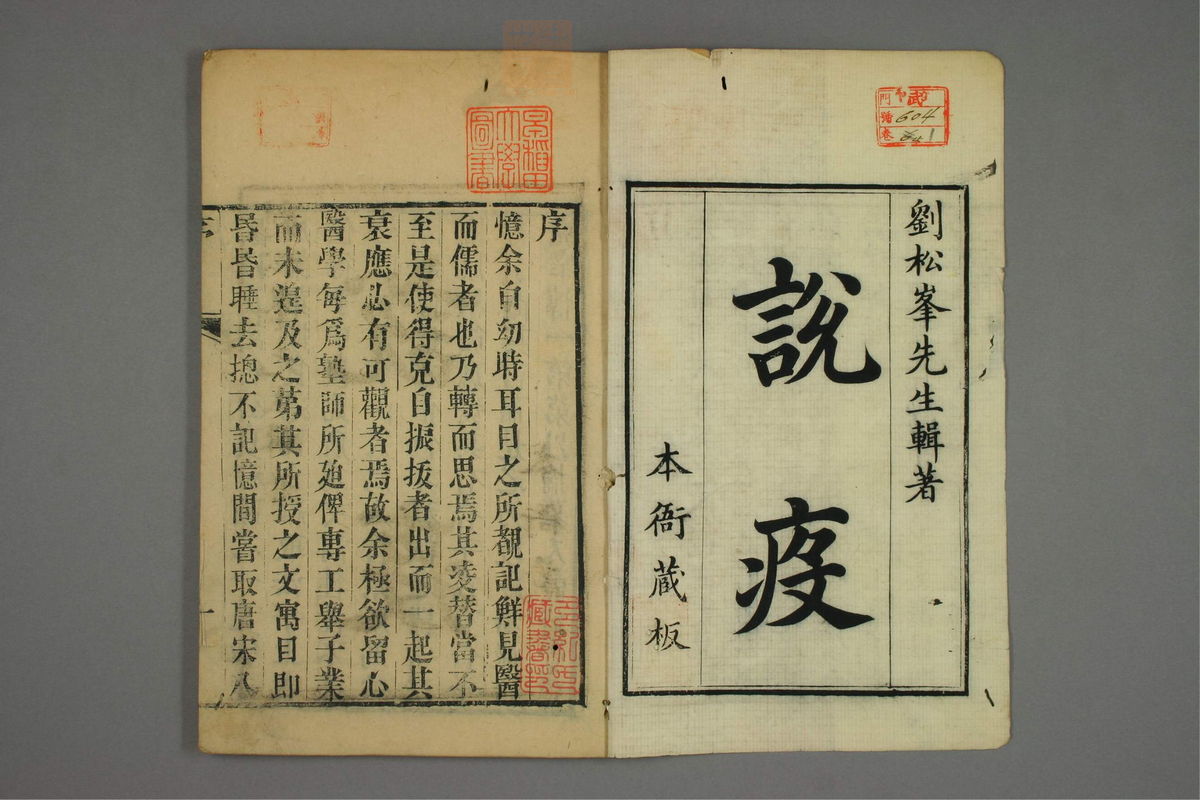 劉松峯先生輯著
說疫
本衙蔵板
序
憶余自幼時耳目之所覩記鮮見醫
而儒者也乃轉而思焉其凌替當不
至是使得克自振拔者出而一起其
衰應必有可觀者焉故余極欲留心
醫學每爲塾師所廹俾專工舉子業
而未遑及之第其所授之文寓目即
昏昏睡去揔不記憶間嘗取唐宋八
序
一
早稲田大學圖書
門
號
604
卷
1